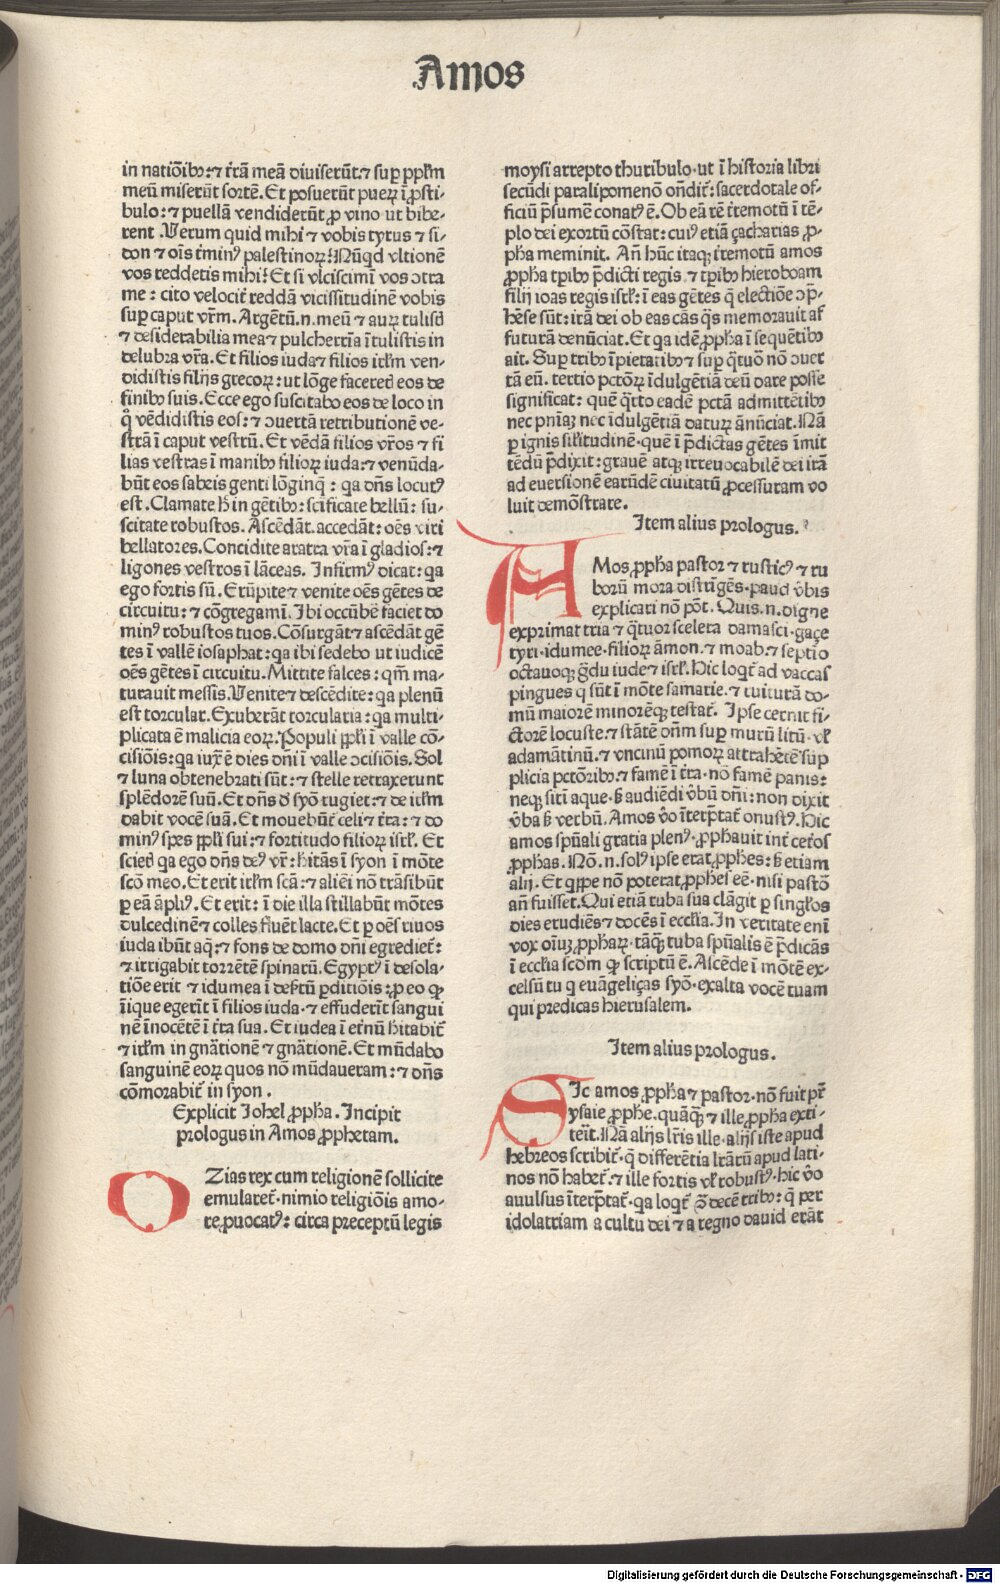 Amos
in natiõibꝰ: ⁊ t̃rã meã diviserũt: ⁊ suꝑ ppl̃m
meũ miserũt sortẽ. Et posuerũt pueꝝ ĩ ꝓsti-
bulo: ⁊ puellã vendiderũt ꝓ vino ut bibe-
rent. Verum quid mihi ⁊ vobis tyrus ⁊ si-
don ⁊ oĩs t̃minꝰ palestinoꝝ? Nũqd vltionẽ
vos reddetis mihi? Et si vlciscimĩ vos ↄtra
me: cito velocit̃ reddã vicissitudinẽ vobis
suꝑ caput vr̃m. Argẽtũ.n. meũ ⁊ auꝝ tulisꝭ
⁊ desiderabilia mea ⁊ pulcherrĩa ĩtulistis in
delubra vr̃a. Et filios iuda ⁊ filios irl̃m ven-
didistis filijs grecoꝝ: ut lõge facereꝭ eos de
finibꝰ suis. Ecce ego suscitabo eos de loco in
q̊ vẽdidistis eos: ⁊ ↄuertã retributionẽ ve-
strã ĩ caput vestrũ. Et vẽdã filios vr̃os ⁊ fi
lias vestras ĩ manibꝰ filioꝝ iuda: ⁊ venũda-
bũt eos sabeis genti lõginq̃: qa dñs locutꝰ
est. Clamate h̃ in gẽtibꝰ: sc̃ificate bellũ: su-
scitate robustos. Ascẽdãt. accedãt: oẽs viri
bellatores. Concidite aratra vr̃a ĩ gladios: ⁊
ligones vestros ĩ lãceas. Infirmꝰ dicat: qa
ego fortis sũ. Erũpite ⁊ venite oẽs gẽtes de
circuitu: ⁊ cõgregamĩ. Ibi occũbẽ faciet do
minꝰ robustos tuos. Cõsurgãt ⁊ ascẽdãt gẽ
tes ĩ vallẽ iosaphat: qa ibi sedebo ut iudicẽ
oẽs gẽtes ĩ circuitu. Mittite falces: qm̃ ma-
turauit messis. Venite ⁊ descẽdite: qa plenũ
est torcular. Exuberãt torcularia: qa multi-
plicata ẽ malicia eoꝝ. Populi ppl̃i ĩ valle cõ-
cisiõis: qa iuxͣ ẽ dies dñi ĩ valle ↄcisiõis. Sol
⁊ luna obtenebrati sũt: ⁊ stelle retraxerunt
splẽdorẽ suũ. Et dñs d̓ syõ rugiet: ⁊ de irl̃m
dabit vocẽ suã. Et mouebũt̃ celi ⁊ t̃ra: ⁊ do
minꝰ spes ppl̃i sui: ⁊ fortitudo filioꝝ isrl̃. Et
scieꝭ qa ego dñs deꝰ vr̃: h̃itãs ĩ syon ĩ mõte
scõ meo. Et erit irl̃m scã: ⁊ aliẽi nõ trãsibũt
ꝑ eã ãpliꝰ. Et erit: ĩ die illa stillabũt mõtes
dulcedinẽ ⁊ colles fluẽt lacte. Et ꝑ oẽs riuos
iuda ibũt aq̃: ⁊ fons de domo dñi egrediet̃:
⁊ irrigabit torrẽtẽ spinarũ. Egyptꝰ ĩ desola-
tiõe erit ⁊ idumea ĩ desͬtũ ꝑditiõis: ꝓ eo ꝙ
ĩique egerĩt ĩ filios iuda. ⁊ effuderĩt sangui
nẽ ĩnocẽtẽ ĩ t̃ra sua. Et iudea ĩ et̃nũ h̃itabit̃
⁊ irl̃m in gñatione ⁊ gñationẽ. Et mũdabo
sanguinẽ eoꝝ quos nõ mũdaueram: ⁊ dñs
cõmorabit̃ in syon.
Explicit Iohel ꝓph̃a. Incipit
prologus in Amos ꝓphetam.
OZias rex cum religionẽ sollicite
emularet̃. nimio religiõis amo-
re ꝓuocatꝰ: circa preceptũ legis
moysi arrepto thuribulo. ut ĩ historia libri
secũdi paralipomenõ oñdit̃: sacerdotale of-
ficiũ p̃sumẽ conatꝰ ẽ. Ob eã rẽ t̃remotũ ĩ tẽ-
plo dei exortũ cõstat: cuiꝰ etiã çacharias ꝓ-
pha meminit. Añ hũc itaqꝫ t̃remotũ amos
ꝓpha tꝑibꝰ p̃dicti regis ⁊ tꝑibꝰ hieroboam
filij ioas regis isrl̃: ĩ eas gẽtes q̃ electiõe ↄp̃-
hẽse sũt: irã dei ob eas cãs q̃s memorauit af
futurã denũciat. Et qa idẽ ꝓph̃a ĩ sequẽtibꝰ
ait. Suꝑ tribꝰ ĩpietatibꝰ ⁊ suꝑ q̃tuõ nõ ↄuer
tã eũ. tertio pctõꝝ ĩdulgẽtiã deũ dare posse
significat: quẽ q̃rto eadẽ pctã admittẽtibꝰ
nec pniaꝫ nec ĩdulgẽtiã daturꝝ ãnũciat. Nã
ꝑ ignis sil̃itudinẽ. quẽ ĩ p̃dictas gẽtes ĩmit
tẽdũ p̃dixit: grauẽ atqꝫ irreuocabilẽ dei irã
ad euersionẽ earũdẽ ciuitatũ ꝓcessuram vo
luit demõstrare.
Item alius prologus.
AMos ꝓph̃a pastor ⁊ rusticꝰ ⁊ ru
borũ mora distrĩgẽs. paucꝭ v̓bis
explicari nõ põt. Quis.n. digne
exprimat tria ⁊ q̃tuor scelera damasci. gaçe
tyri. idumee. filioꝝ ãmon. ⁊ moab. ⁊ septĩo
octauoqꝫ g̃du iude ⁊ isrl̃. Hic loqt̃ ad vaccas
pingues q̃ sũt ĩ mõte samarie. ⁊ ruiturã do-
mũ maiorẽ minorẽqꝫ testat̃. Ipse cernit fi-
ctorẽ locuste. ⁊ stãtẽ dñm suꝑ murũ litũ. vl̃
adamãtinũ. ⁊ vncinũ pomoꝝ attrahẽtẽ sup
plicia pctõribꝰ. ⁊ famẽ ĩ t̃ra. nõ famẽ panis:
neqꝫ sitĩ aque. s̃ audiẽdi v̓bũ dñi: non dixit
v̓ba s̃ verbũ. Amos v̓o ĩterp̃tat̃ onustꝰ. Hic
amos sp̃uali gratia plenꝰ. ꝓphauit int̃ cet̃os
ꝓphas. Nõ.n. solꝰ ipse erat ꝓphes: s̃ etiam
alij. Et q̃ppe nõ poterat ꝓphes eẽ. nisi pastõ
añ fuisset. Qui etiã tuba sua clãgit ꝑ singl̃os
dies erudiẽs ⁊ docẽs ĩ eccl̃ia. In veritate enĩ
vox oĩuꝫ ꝓphaꝝ. tãq̃ tuba sp̃ualis ẽ p̃dicãs
ĩ eccl̃ia scõm ꝙ scriptũ ẽ. Ascẽde ĩ mõtẽ ex-
celsũ tu q̃ euãgeliças syõ. exalta vocẽ tuam
qui predicas hierusalem.
Item alius prologus.
SIc amos ꝓph̃a ⁊ pastor. nõ fuit pr̃
ysaie ꝓphe. quãq̃ ⁊ ille ꝓpha exti-
terĩt. Nã alijs l̃ris ille. alijs iste apud
hebreos scribit̃. q̃ differẽtia l̃rarũ apud lati-
nos nõ habet̃. ⁊ ille fortis vl̃ robustꝰ. hic v̓o
auulsus ĩterp̃tat̃. qa loqt̃ ↄ̃ decẽ tribꝰ: q̃ per
idolatriam a cultu dei ⁊ a regno dauid erãt
Digitalisierung gefördert durch die Deutsche Forschungsgemeinschaft - DFG